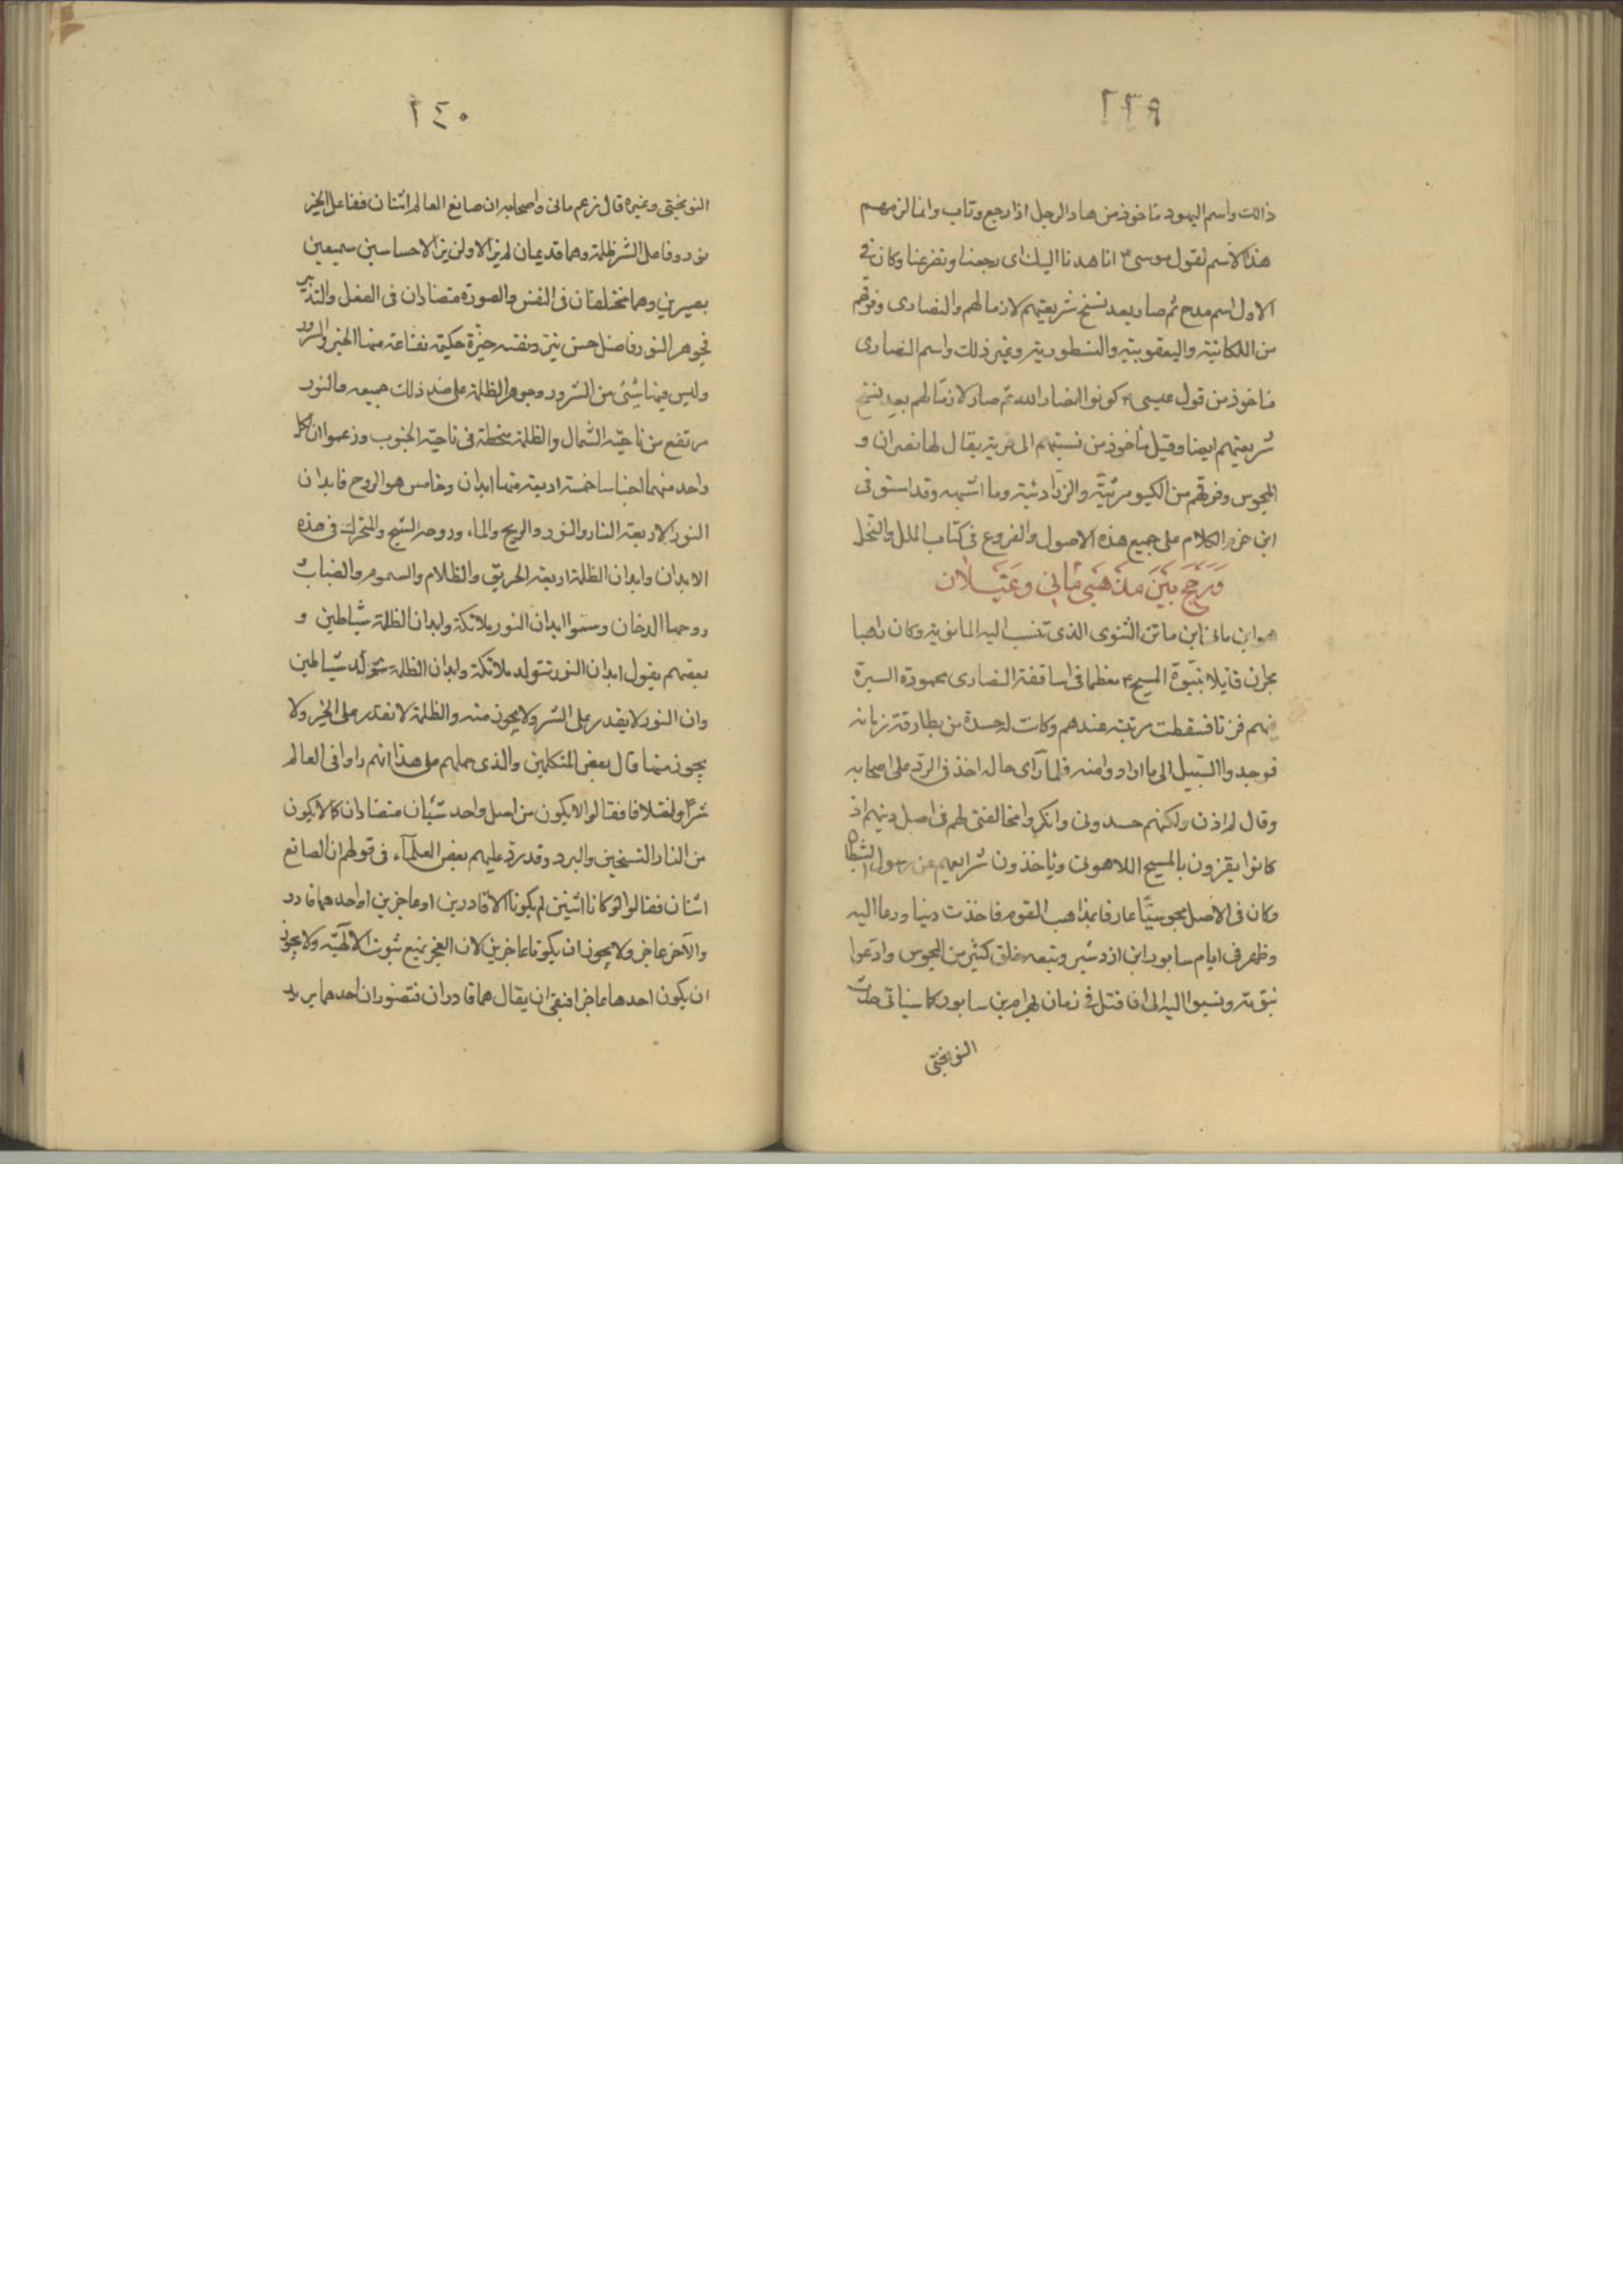 ٢٣٩
ذالك واسم اليهود ماخوذ من هاد الرجل اذا رجع وتاب وانما لزمهم
هذا الاسم لقول موسى ع انا هدنا اليك اى رجعنا وتضرعنا وكان فى
الاول اسم مدح ثم صار بعد نسخ شريعتهم لازما لهم والنصارى وفرقهم
من الملكانية واليعقوبية والنسطورية وغير ذلك واسم النصارى
ماخوذ من قول عيسى ع كونوا انصار الله ثم صار لازما لهم بعد نسخ
شريعتهم ايضا وقيل ماخوذ من نسبتهم الى قرية يقال لها نصران و
المجوس وفرقهم من الكيومرثية والزرادشتية وما اشبهه وقد استوفى
ابن حزم الكلام على جميع هذه الاصول والفروع فى كتاب الملل والنحل
وَرَجَّح بَيْنَ مذهَبَى مَانِي وغَيَلان
هو ابن مانى ابن ماتن الثنوى الذى تنسب اليه المانوية وكان راهبا
بحران قايلا بنبوّة المسيح ع معظما فى اساقفة النصارى محمودة السيرة
فيهم فزنا فسقطت مرتبته عندهم وكانت له حسدة من بطارقة زمانه
فوجدوا السّبيل الى ما ارادوا منه فلما رآى حاله اخذ فى الرد على اصحابه
وقال لم ازن ولكنهم حسدونى وانكروا مخالفتى لهم فى اصل دينهم اذ
كانوا يقرون بالمسيح اللاهوتى وياخذون شرايعهم عن رسول الشيطان
وكان فى الاصل مجوسيّا عارفا بمذاهب القوم فاخذت دينا ودعا اليه
وظهر فى ايام سابور ابن ازدشير وتبعه خلق كثير من المجوس وادّعوا
نبوّته ونسبوا اليه الى ان قتل فى زمان بهرام بن سابور كما سياتى حدّث
النوبختى
٢٤٠
النوبختى وغيره قال زعم مانى واصحابه ان صانع العالم اثنان ففاعل الخير
نور وفاعل الشر ظلمة وهما قديمان لم يزالا ولن يزالا حساسين سميعين
بصيرين وهما مختلفان فى النفس والصورة متضادان فى الفعل والتدبير
فجوهر النور فاضل حسن نيّر ونفسه خيّرة حكيمة نفاعة منها الخير والسرور
وليس فيها شئ من الشرور وجوهر الظلمة على ضد ذلك جميعه فالنور
مرتفع من ناحية الشمال والظلمة منحطة فى ناحية الجنوب وزعموا ان لكل
واحد منهما اجناسا خمسة اربعة منها ابدان وخامس هو الروح فابدان
النور الاربعة النار والنور والريح والماء وروحه الشبح والمتحرك فى هذه
الابدان وابدان الظلمة اربعة الحريق والظلام والسموم والضباب
روحها الدخان وسمّوا ابدان النور ملائكة وابدان الظلمة شياطين و
بعضهم يقول ابدان النور تتولد ملائكة وابدان الظلمة تتولد شياطين
وان النور لا يقدر على الشر ولا يجوز منه والظلمة لا تقدر على الخير ولا
يجوز منها قال بعض المتكلمين والذى حملهم على هذا انهم راوا فى العالم
شرّا واختلافا فقالوا لا يكون من اصل واحد شيئان متضادان كما لا يكون
من النار التسخين والبرد وقد ردّ عليهم بعض العلمآء فى قولهم ان الصانع
اثنان فقالوا لو كانا اثنين لم يكونا الا قادرين او عاجزين او احدهما قادر
والآخر عاجز ولا يجوز ان يكونا عاجزين لان العجز يمنع ثبوت الالهيّة ولا يجوز
ان يكون احدهما عاجزا فبقى ان يقال هما قادران فتصوران احدهما يريد